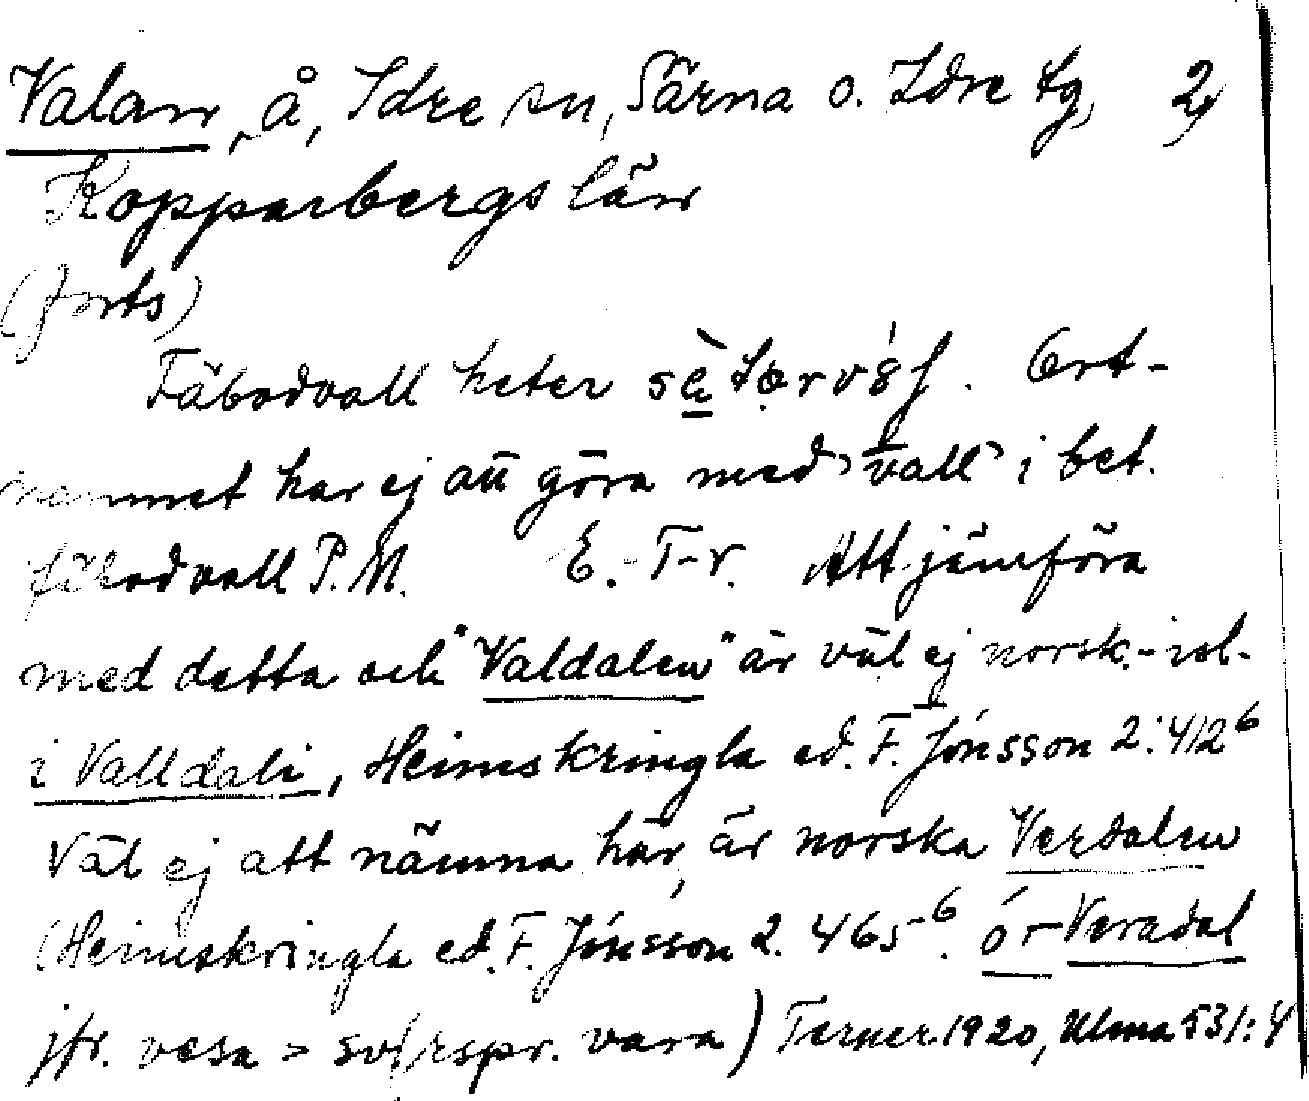 Valan, å, Idre sn, Särna o. Idre tg, 2)
Kopparbergs län
(forts)
Fäbodvall heter. Ort-
namnet har ej att göra med vall i bet.
fäbodvall P.M. E. T-r. Att jämföra
med detta och "Valdalen" är väl ej norsk.-isl.
i Valldali, Heimskringla ed. F. Jónsson 2:412⁶
Väl ej att nämna här, är norska Verdalen
(Heimskringla ed. F. Jónsson 2. 465⁶. ór Veradal
jfr. vesa > sv. rspr. vara) Terner 1920, Ulma 531:4